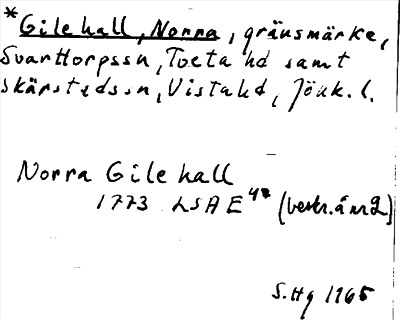 *Gilehall, Norra, gränsmärke,
Svarttorpssn, Tveta hd samt
Skärstedssn, Vistahd, Jönk. l.
Norra Gilehall
1773 LSA E
S. Hg 1965